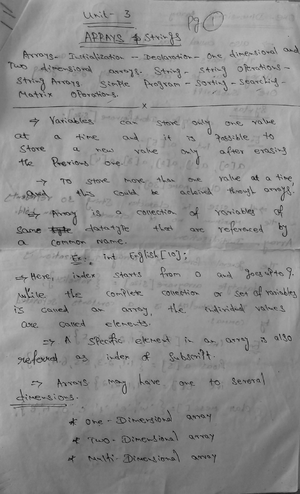 Unit - 3
Pg 1
ARRAYS & Strings
Arrays - Initialization - Declaration - One dimensional and
Two dimensional arrays. String - String Operations -
String Arrays Simple Program - Sorting - Searching -
Matrix Operations.
x
⇒ Variables can store only one value
at a time and it is Possible to
store a new value only after erasing
the Previous one.
⇒ To store more than one value at a time
and this could be achieved through arrays.
⇒ Array is a collection of variables of
same datatype that are referenced by
a common name.
Ex. int English [10];
⇒ Here, index starts from 0 and goes upto 9.
while the complete collection or set of variables
is called an array, the individual values
are called elements.
⇒ A specific element in an array is also
referred as index or subscript.
⇒ Arrays may have one to several
dimensions.
* One - Dimensional array
* Two - Dimensional array
* Multi - Dimensional array